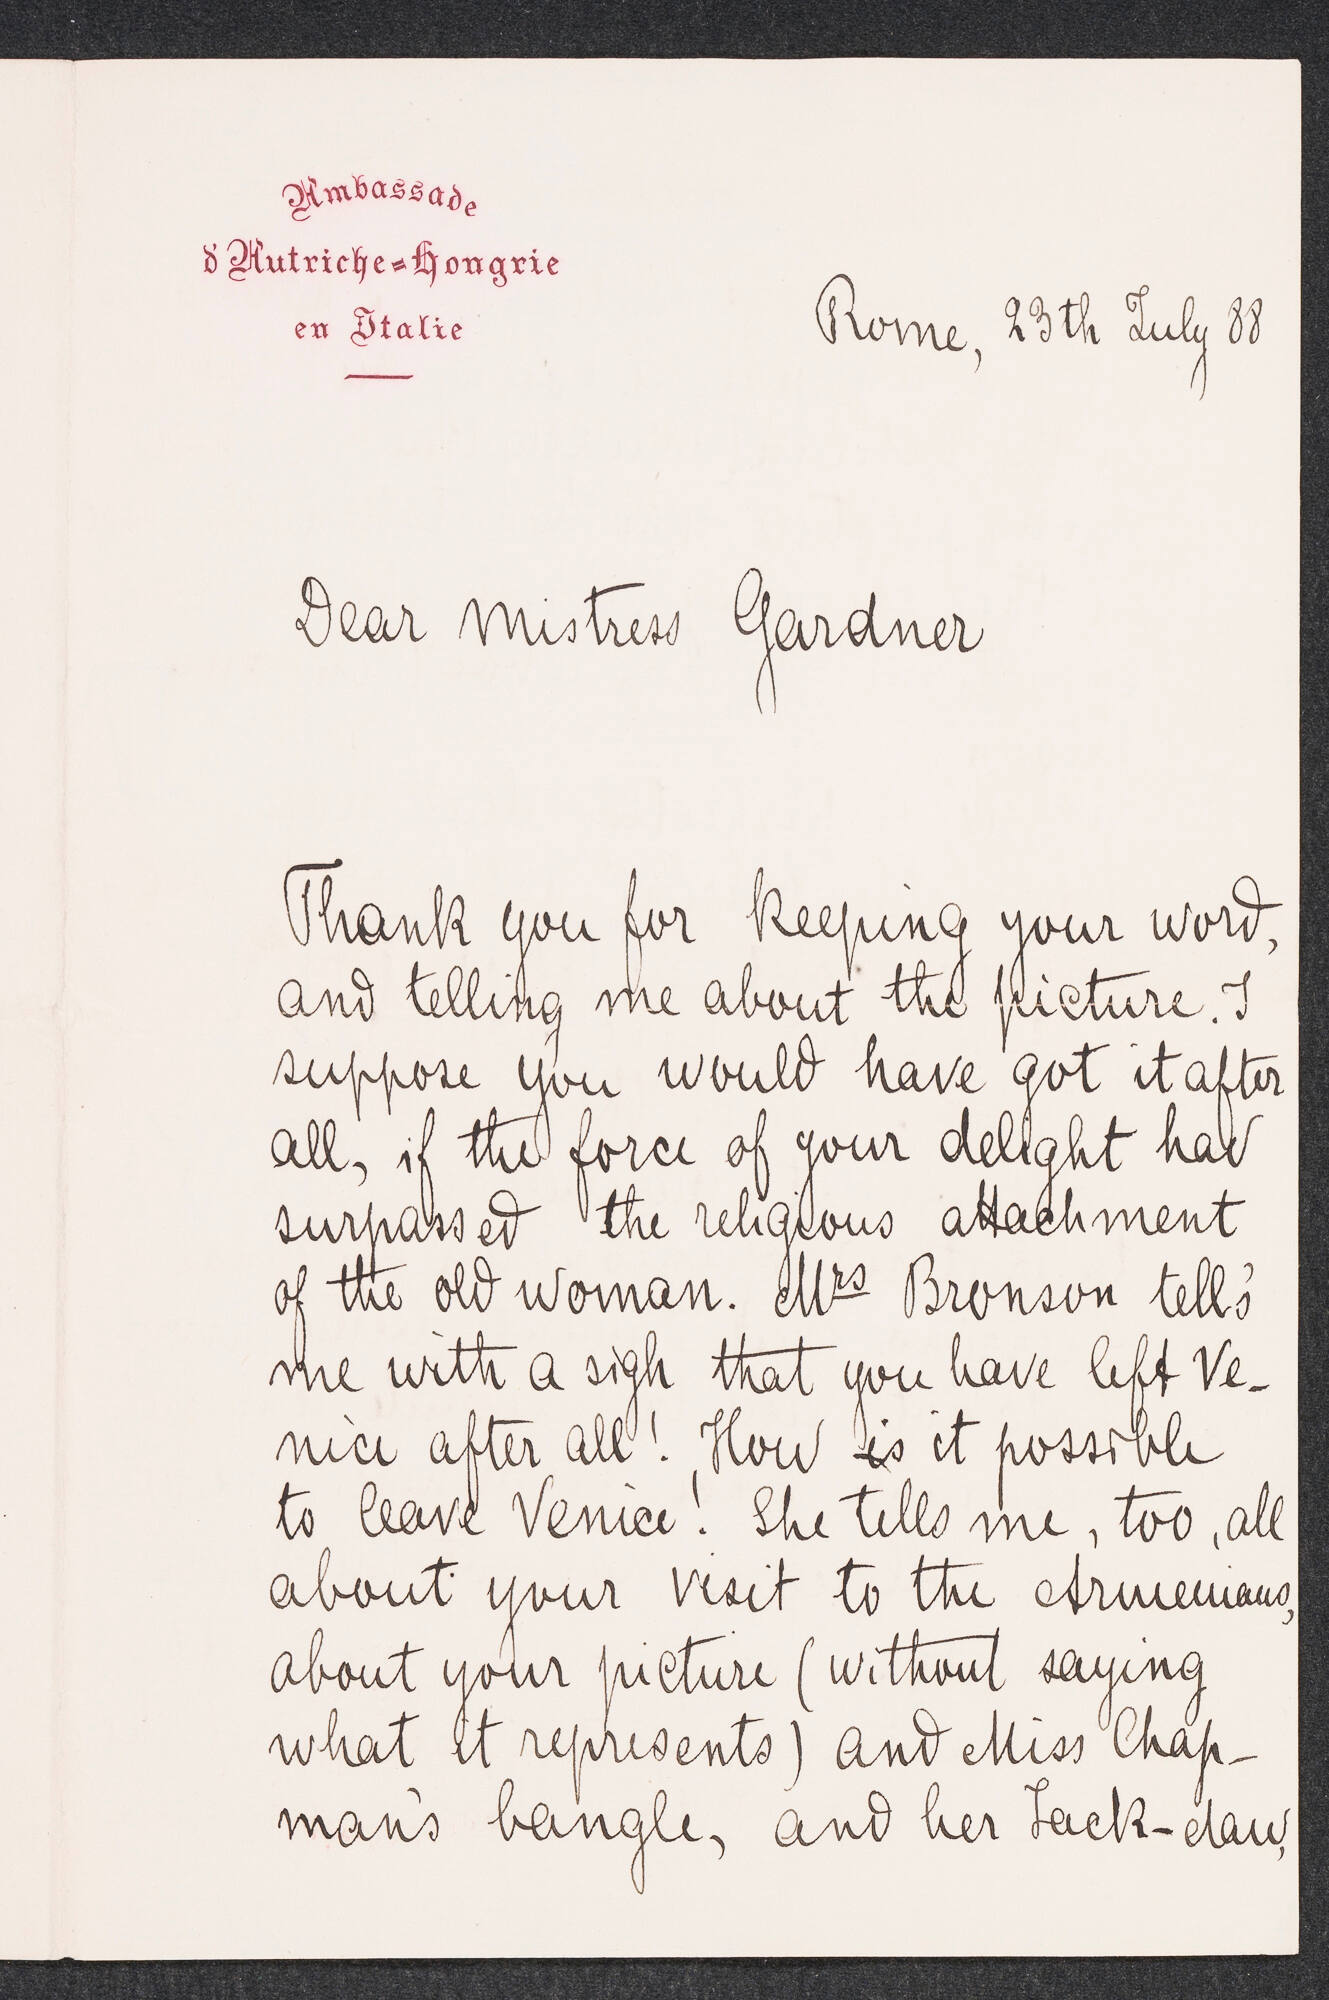 Ambassade
d'Autriche-Hongrie
en Italie
Rome, 23th July 88
Dear Mistress Gardner
Thank you for keeping your word,
and telling me about the picture. I
suppose you would have got it after
all, if the force of your delight had
surpassed the religious attachment
of the old woman. Mrs Bronson tell's
me with a sigh that you have left Ve-
nice after all! How is it possible
to leave Venice! She tells me, too, all
about your visit to the Armenians,
about your picture (without saying
what it represents) and Miss Chap-
man's bangle, and her Jack-daw,